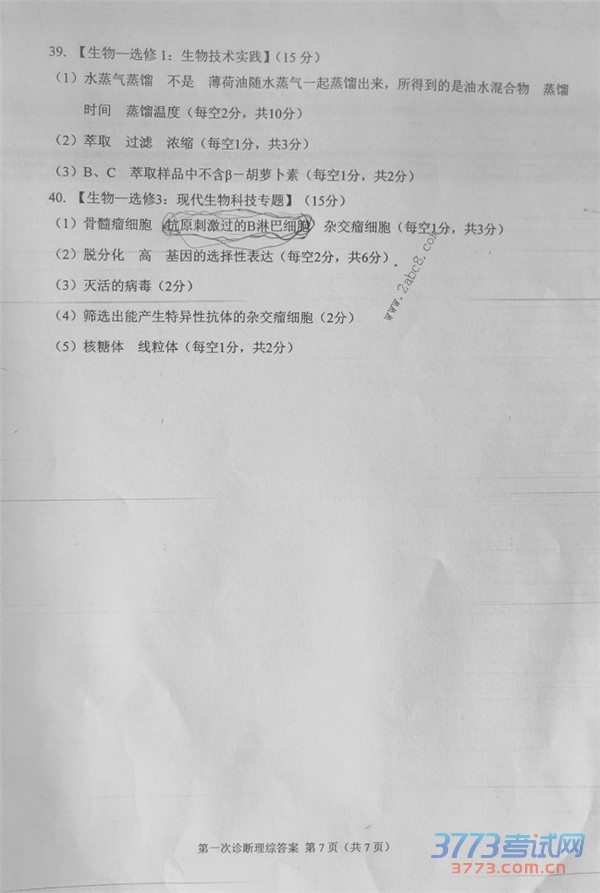 39. 【生物—选修1：生物技术实践】（15分）
（1）水蒸气蒸馏 不是 薄荷油随水蒸气一起蒸馏出来，所得到的是油水混合物 蒸馏
时间 蒸馏温度（每空2分，共10分）
（2）萃取 过滤 浓缩（每空1分，共3分）
（3）B、C 萃取样品中不含β—胡萝卜素（每空1分，共2分）
40. 【生物—选修3：现代生物科技专题】（15分）
（1）骨髓瘤细胞 抗原刺激过的B淋巴细胞 杂交瘤细胞（每空1分，共3分）
（2）脱分化 高 基因的选择性表达（每空2分，共6分）
（3）灭活的病毒（2分）
（4）筛选出能产生特异性抗体的杂交瘤细胞（2分）
（5）核糖体 线粒体（每空1分，共2分）
www.2abc8.com
第一次诊断理综答案 第7页（共7页）
3773考试网
3773.com.cn